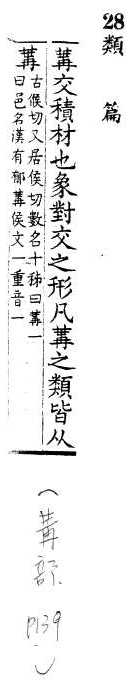 28類篇
冓交積材也象對交之形凡冓之類皆从
冓古候切又居侯切數名十秭曰冓一
曰邑名漢有郁冓侯文一重音一
(冓部 P139)